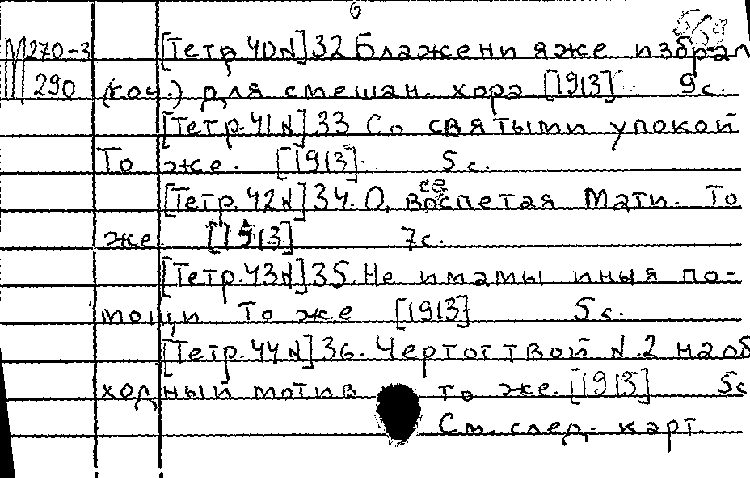 6
569
M270-3 [Тетр. 40 N] 32 Блажени яже избрал
290 (соч.) для смешан. хора [1913] 9с.
[Тетр. 41 N] 33 Со святыми упокой
То же. [1913] 5с.
[Тетр. 42 N] 34. О, всепетая Мати. То
же [1913] 7с.
[Тетр. 43 N] 35. Не имамы иныя по-
мощи То же [1913] 5с.
[Тетр. 44 N] 36. Чертог твой N. 2 на об
ходный мотив то же. [1913] 5с
См. след. карт.